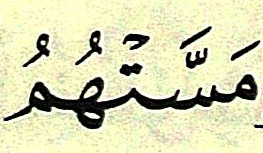 مَسَّتۡهُمُ